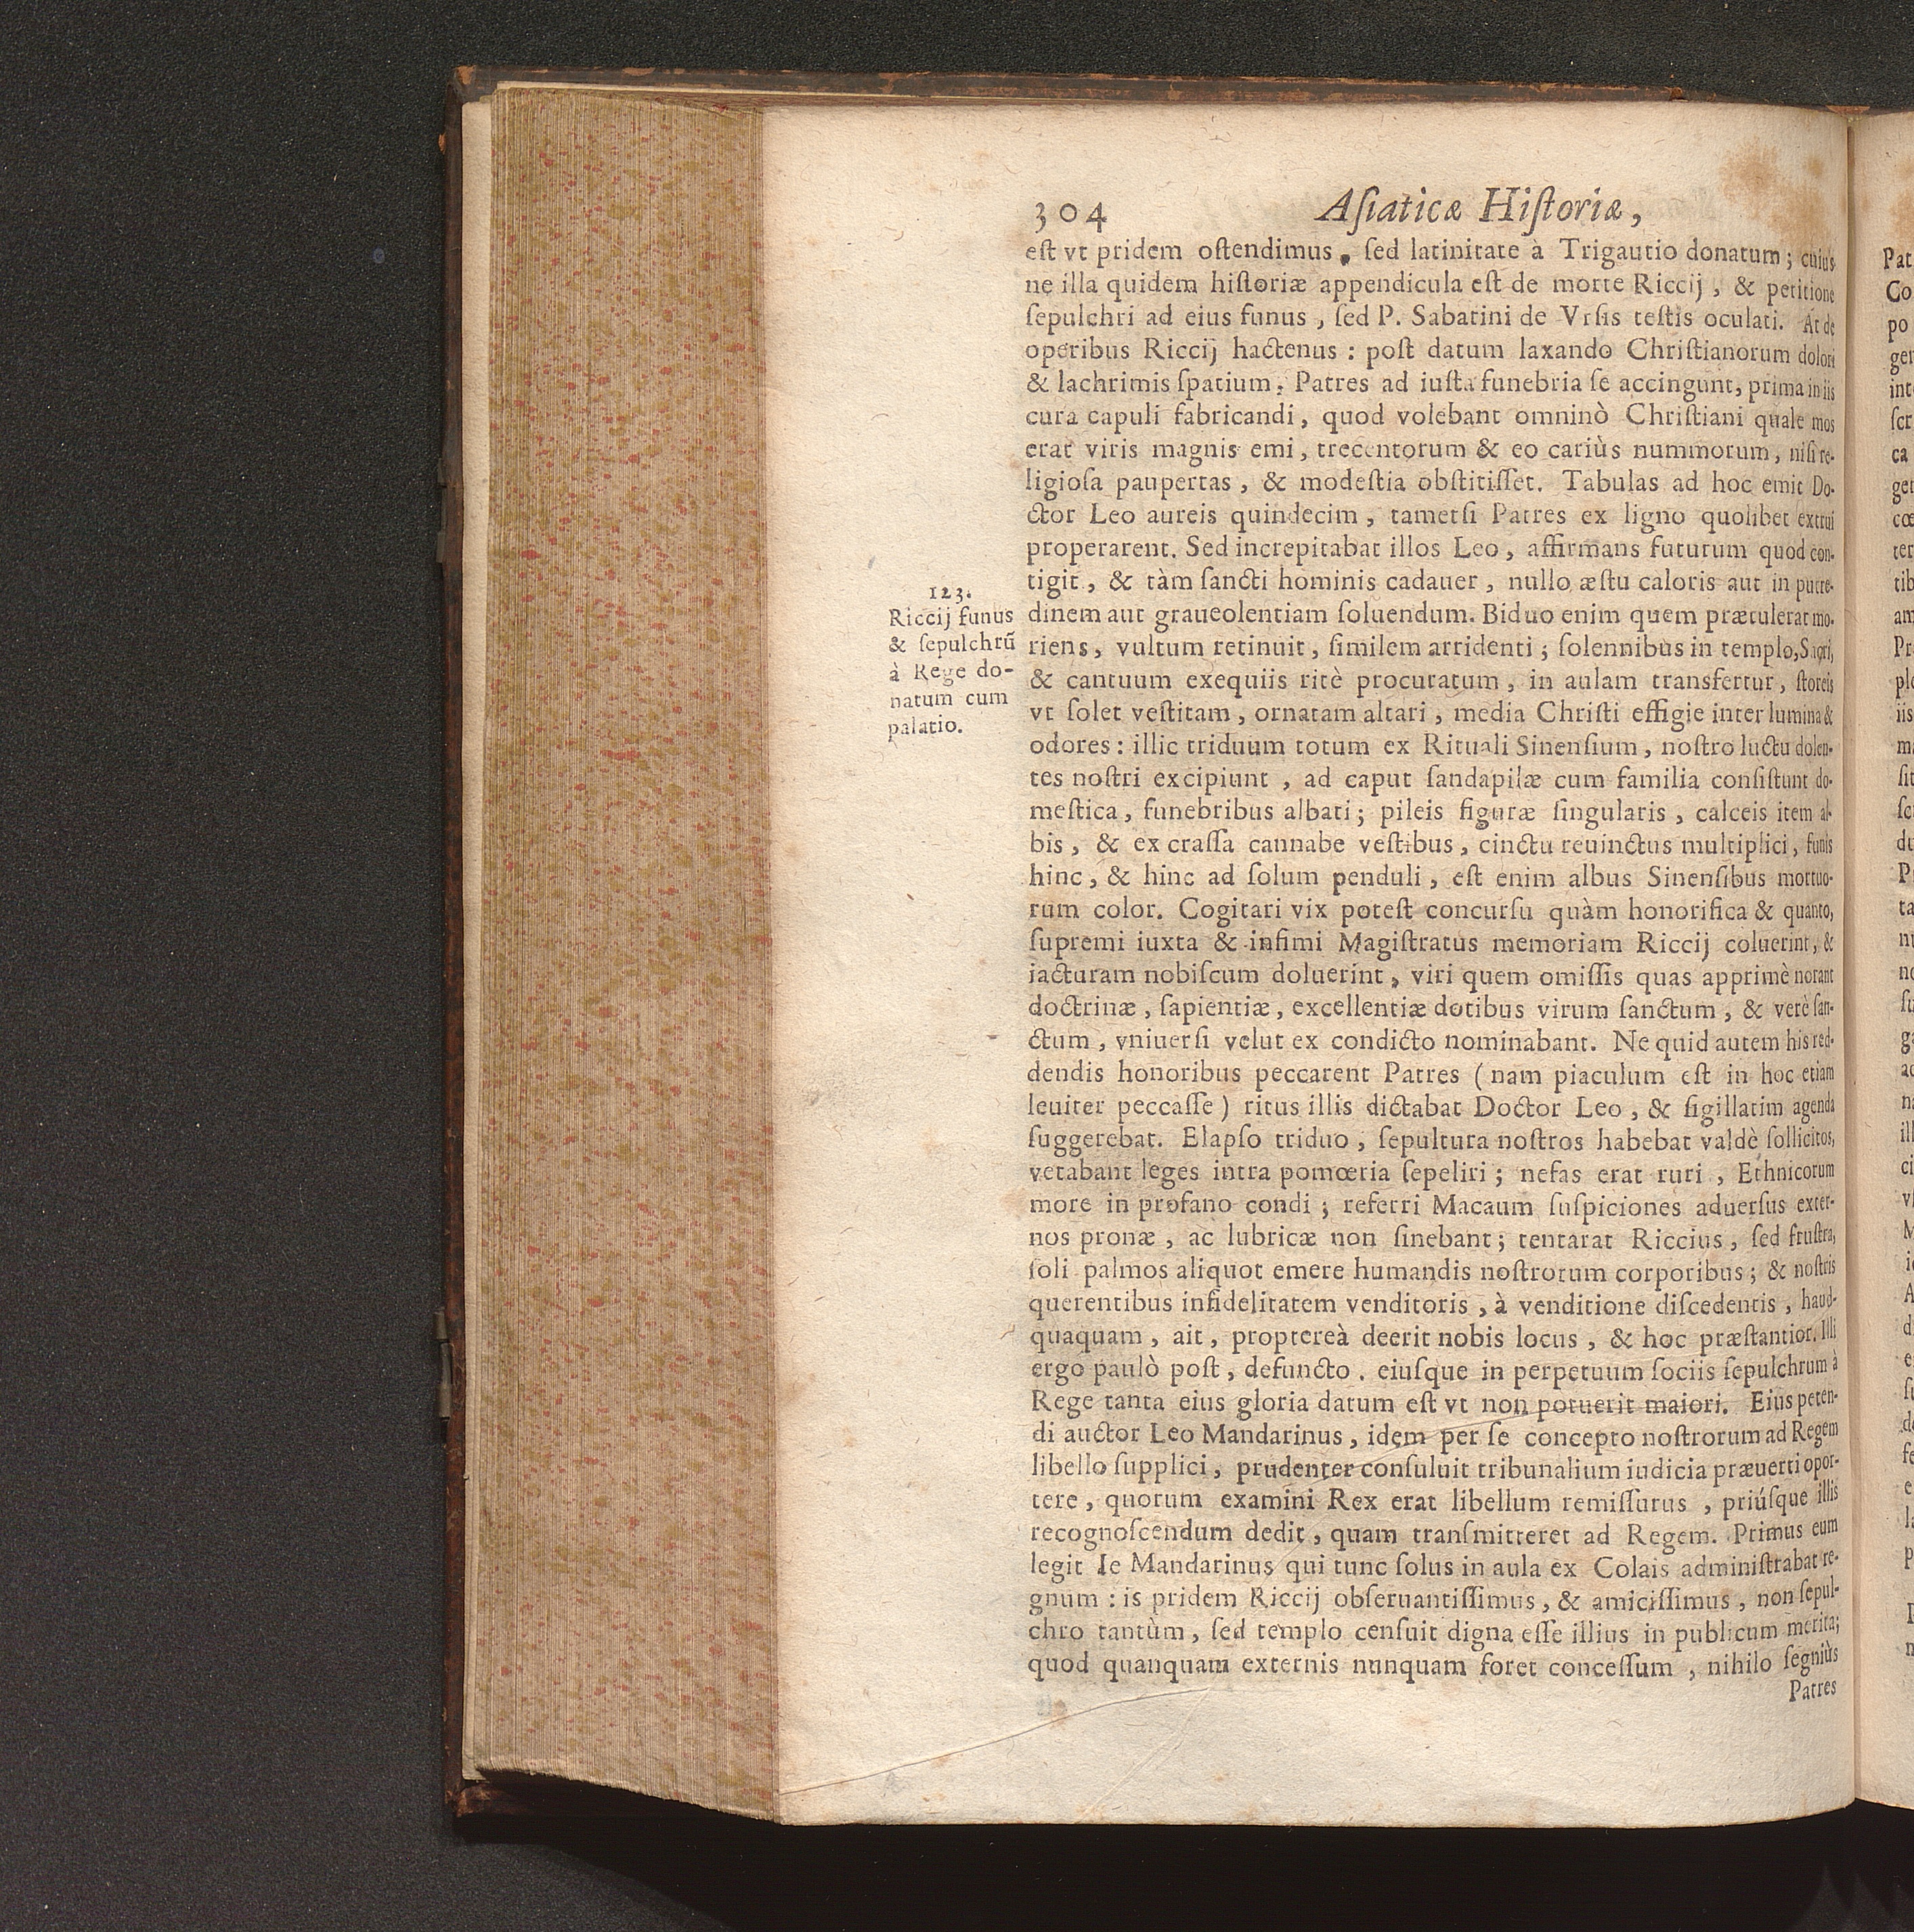 304 Aſiaticæ Hiſtoriæ,
eſt vt pridem oſtendimus, ſed latinitate à Trigautio donatum; cuius
ne illa quidem hiſtoriæ appendicula eſt de morte Riccij, & petitione
ſepulchri ad eius funus, ſed P. Sabatini de Vrſis teſtis oculati. At de
operibus Riccij hactenus: poſt datum laxando Chriſtianorum dolori
& lachrimis ſpatium, Patres ad iuſta funebria ſe accingunt, prima in iis
cura capuli fabricandi, quod volebant omninò Chriſtiani quale mos
erat viris magnis emi, trecentorum & eo cariùs nummorum, niſi re-
ligioſa paupertas, & modeſtia obſtitiſſet. Tabulas ad hoc emit Do-
ctor Leo aureis quindecim, tametſi Patres ex ligno quolibet extrui
properarent. Sed increpitabat illos Leo, affirmans futurum quod con-
tigit, & tàm ſancti hominis cadauer, nullo æſtu caloris aut in putre-
dinem aut graueolentiam ſoluendum. Biduo enim quem prætulerat mo-
riens, vultum retinuit, ſimilem arridenti; ſolennibus in templo, Sacri,
& cantuum exequiis ritè procuratum, in aulam transfertur, ſtoreis
vt ſolet veſtitam, ornatam altari, media Chriſti effigie inter lumina &
odores: illic triduum totum ex Rituali Sinenſium, noſtro luctu dolen-
tes noſtri excipiunt, ad caput ſandapilæ cum familia conſiſtunt do-
meſtica, funebribus albati; pileis figuræ ſingularis, calceis item al-
bis, & ex craſſa cannabe veſtibus, cinctu reuinctus multiplici, funis
hinc, & hinc ad ſolum penduli, eſt enim albus Sinenſibus mortuo-
rum color. Cogitari vix poteſt concurſu quàm honorifica & quanto,
ſupremi iuxta & infimi Magiſtratus memoriam Riccij coluerint, &
iacturam nobiſcum doluerint, viri quem omiſſis quas apprimè norant
doctrinæ, ſapientiæ, excellentiæ dotibus virum ſanctum, & verè ſan-
ctum, vniuerſi velut ex condicto nominabant. Ne quid autem his red-
dendis honoribus peccarent Patres (nam piaculum eſt in hoc etiam
leuiter peccaſſe) ritus illis dictabat Doctor Leo, & ſigillatim agenda
ſuggerebat. Elapſo triduo, ſepultura noſtros habebat valdè ſollicitos,
vetabant leges intra pomœria ſepeliri; nefas erat ruri, Ethnicorum
more in profano condi; referri Macaum ſuſpiciones aduerſus exter-
nos pronæ, ac lubricæ non ſinebant; tentarat Riccius, ſed fruſtra,
ſoli palmos aliquot emere humandis noſtrorum corporibus; & noſtris
querentibus infidelitatem venditoris, à venditione diſcedentis, haud-
quaquam, ait, proptereà deerit nobis locus, & hoc præſtantior. Illi
ergo paulò poſt, defuncto, eiuſque in perpetuum ſociis ſepulchrum à
Rege tanta eius gloria datum eſt vt non potuerit maiori. Eius peten-
di auctor Leo Mandarinus, idem per ſe concepto noſtrorum ad Regem
libello ſupplici, prudenter conſuluit tribunalium iudicia præuerti opor-
tere, quorum examini Rex erat libellum remiſſurus, priúſque illis
recognoſcendum dedit, quam tranſmitteret ad Regem. Primus eum
legit Ie Mandarinus qui tunc ſolus in aula ex Colais adminiſtrabat re-
gnum: is pridem Riccij obſeruantiſſimus, & amiciſſimus, non ſepul-
chro tantùm, ſed templo cenſuit digna eſſe illius in publicum merita;
quod quanquam externis nunquam foret conceſſum, nihilo ſegniùs
Patres
123.
Riccij funus
& ſepulchrũ
à Rege do-
natum cum
palatio.